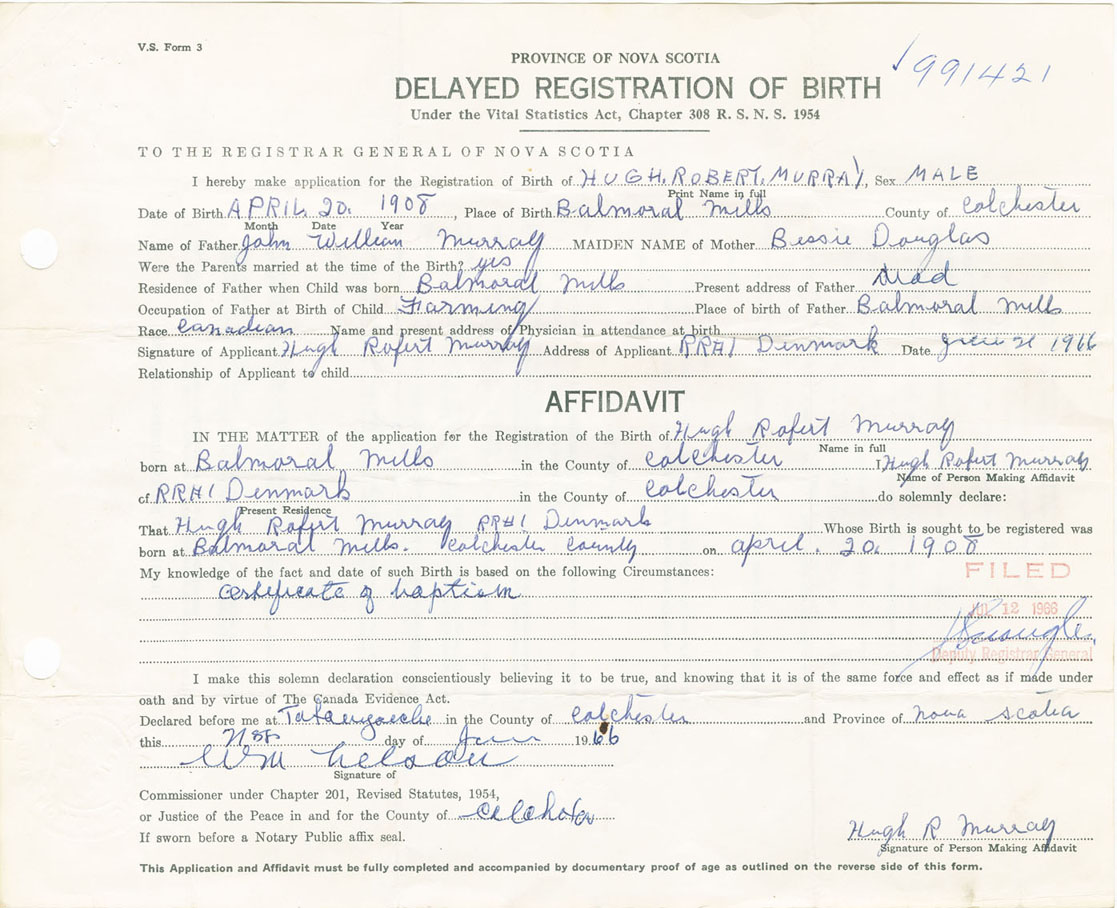 V.S. Form 3
PROVINCE OF NOVA SCOTIA
991421
DELAYED REGISTRATION OF BIRTH
Under the Vital Statistics Act, Chapter 308 R. S. N. S. 1954
TO THE REGISTRAR GENERAL OF NOVA SCOTIA
I hereby make application for the Registration of Birth of HUGH. ROBERT. MURRAY, Sex MALE
Print Name in full
Date of Birth APRIL 20. 1908, Place of Birth Balmoral Mills County of Colchester
Month Date Year
Name of Father John William Murray MAIDEN NAME of Mother Bessie Douglas
Were the Parents married at the time of the Birth? yes
Residence of Father when Child was born Balmoral Mills Present address of Father dead
Occupation of Father at Birth of Child Farming Place of birth of Father Balmoral Mills
Race Canadian Name and present address of Physician in attendance at birth
Signature of Applicant Hugh Robert Murray Address of Applicant RR#1 Denmark Date 21 1966
Relationship of Applicant to child
AFFIDAVIT
IN THE MATTER of the application for the Registration of the Birth of Hugh Robert Murray
Name in full
born at Balmoral Mills in the County of Colchester I Hugh Robert Murray
Name of Person Making Affidavit
of RR#1 Denmark in the County of Colchester do solemnly declare:
Present Residence
That Hugh Robert Murray RR#1 Denmark Whose Birth is sought to be registered was
born at Balmoral Mills. Colchester County on april. 20. 1908
My knowledge of the fact and date of such Birth is based on the following Circumstances:
FILED
Certificate of baptism
JUL 12 1966
Deputy Registrar General
I make this solemn declaration conscientiously believing it to be true, and knowing that it is of the same force and effect as if made under
oath and by virtue of The Canada Evidence Act.
Declared before me at in the County of Colchester and Province of Nova Scotia
this day of 1966
Wm Nelson
Signature of
Commissioner under Chapter 201, Revised Statutes, 1954,
or Justice of the Peace in and for the County of Colchester
If sworn before a Notary Public affix seal.
Hugh R Murray
Signature of Person Making Affidavit
This Application and Affidavit must be fully completed and accompanied by documentary proof of age as outlined on the reverse side of this form.